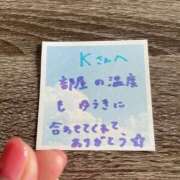 Kさんへ
部屋の温度
も ゆうきに
合わせてくれて
ありがとう☆